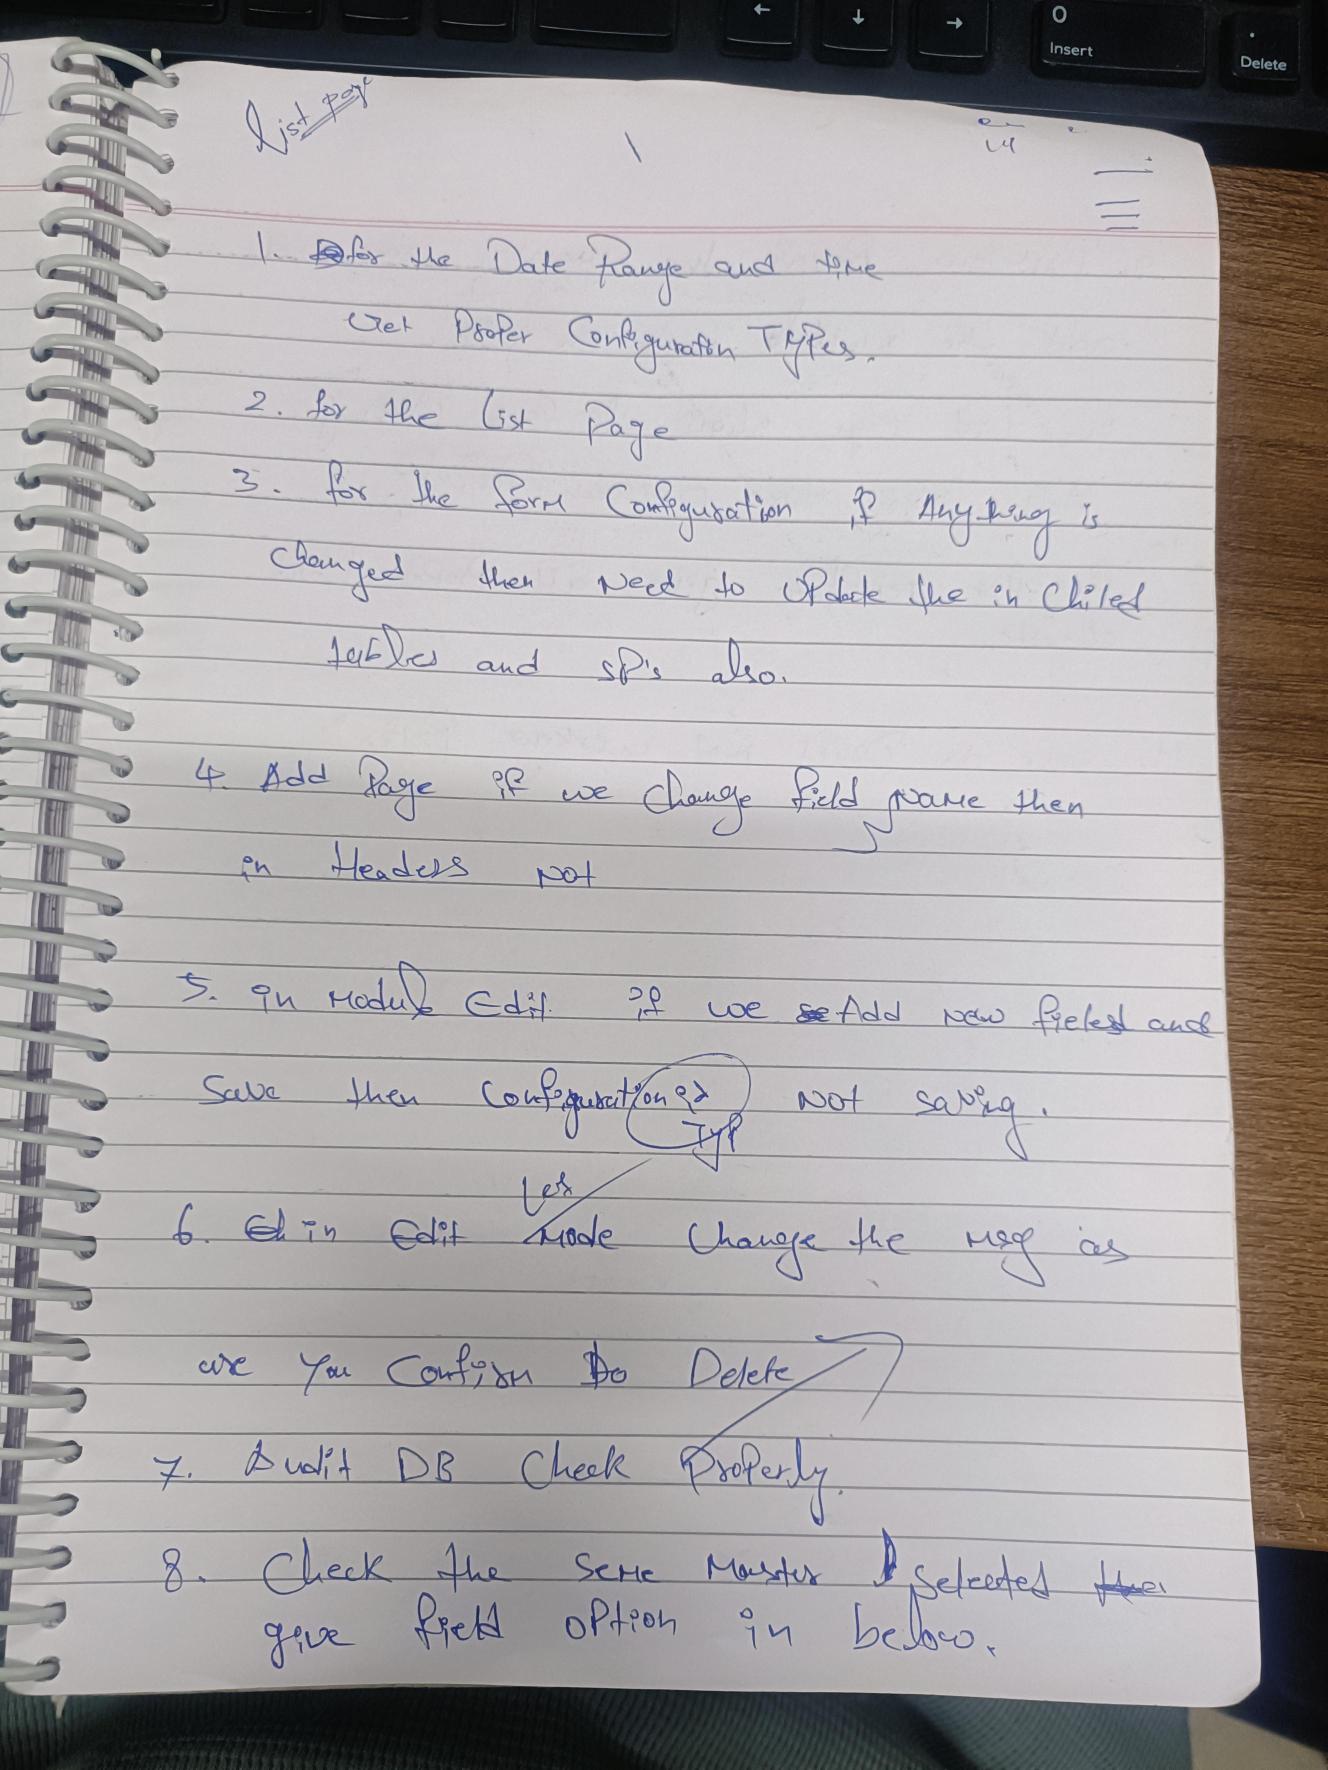 O
Insert
Delete
List page
1. for the Date Range and time
Get Proper Configuration Types.
2. for the List Page
3. for the form Configuration if Anything is
changed then Need to Update the in Chiled
tables and SP's also.
4. Add Page if we change field Name then
in Headers Not
5. in Module Edit if we Add New field and
Save then Configuration Not saving.
Typ
6. in Edit Mode Change the Msg as
are You Confirm Do Delete
7. Audit DB Check Properly.
8. Check the Seme Master selected
give field option in below.